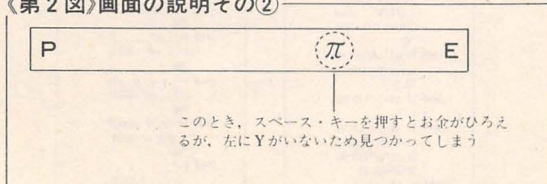 《第2図》画面の説明その②
P π E
このとき，スペース・キーを押すとお金がひろえ
るが，左にYがいないため見つかってしまう